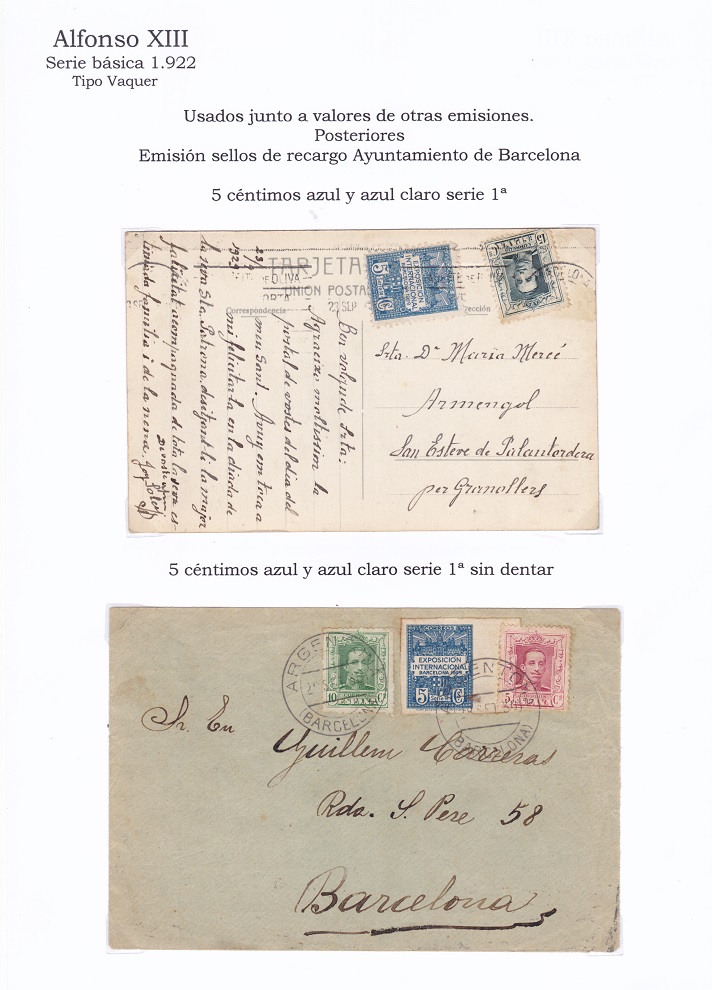 Alfonso XIII
Serie básica 1.922
Tipo Vaquer
Usados junto a valores de otras emisiones.
Posteriores
Emisión sellos de recargo Ayuntamiento de Barcelona
5 céntimos azul y azul claro serie 1ª
TARJETA
UNION POSTA
Correspondencia
OLIVA
22 SEP
EXPOSICIÓN
INTERNACIONAL
5 C
15
BARCELO
Srta. Dª Maria Mercé
Armengol
San Esteve de Palautordera
per Granollers
23/9
1929
Ben volguda Srta:
Agraeixo moltissim la
postal de vostes del dia del
meu Sant. Avuy em toca a
mi felicitarla en la diada de
la seva Sta. Patrona, desitjant-li la major
felicitat acompanyada de tota la seva es-
timada familia i de la nena.
5 céntimos azul y azul claro serie 1ª sin dentar
ARGENTO
(BARCELONA)
10 Cs
CORREOS
EXPOSICIÓN
INTERNACIONAL
BARCELONA
5 C
5
ENTO
(BARCELONA)
Sr. En
Guillem Carreras
Rda. S. Pere 58
Barcelona